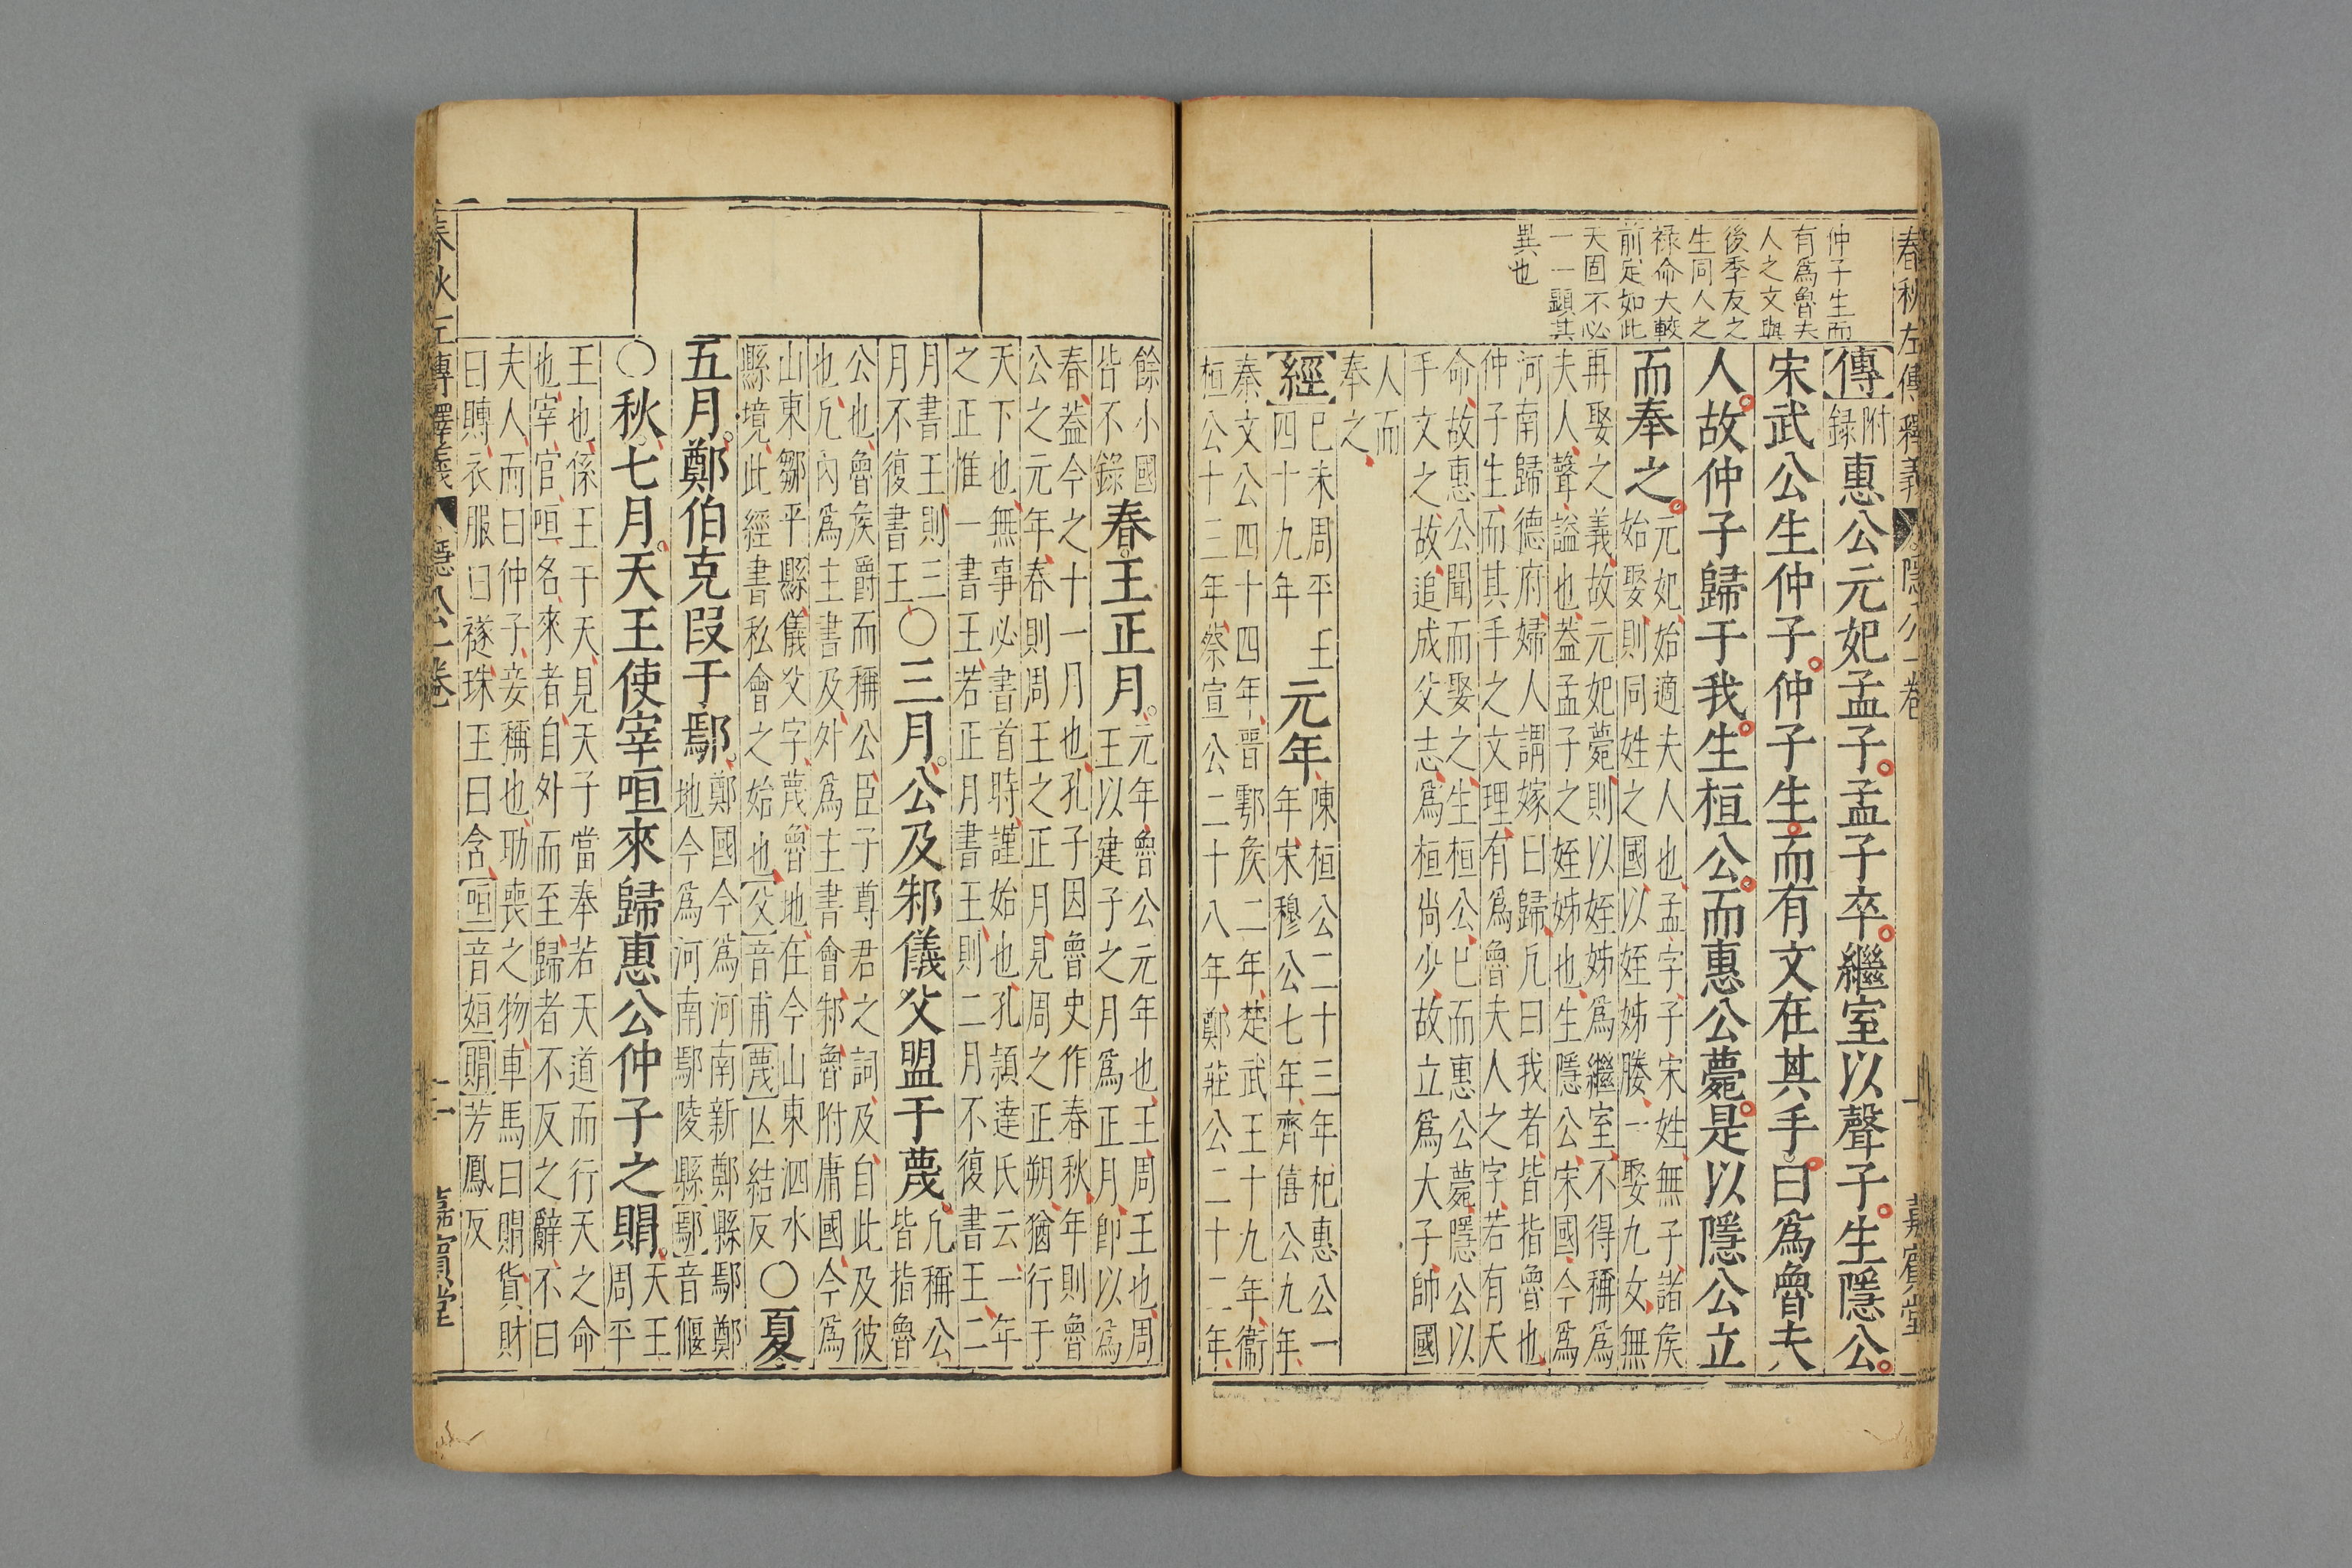 春秋左傳釋義 隱公一卷 一 嘉賓堂
仲子生而
有爲魯夫
人之文與
後季友之
生同人之
祿命大較
前定如此
天固不必
一一顯其
異也
【傳】附錄惠公元妃孟子孟子卒繼室以聲子生隱公
宋武公生仲子仲子生而有文在其手曰爲魯夫
人故仲子歸于我生桓公而惠公薨是以隱公立
而奉之元妃始適夫人也孟字子宋姓無子諸矦
始娶則同姓之國以姪姊媵一娶九女無
再娶之義故元妃薨則以姪姊爲繼室不得稱爲
夫人聲謚也蓋孟子之姪姊也生隱公宋國今爲
河南歸德府婦人謂嫁曰歸凡曰我者皆指魯也
仲子生而其手之文理有爲魯夫人之字若有天
命故惠公聞而娶之生桓公已而惠公薨隱公以
手文之故追成父志爲桓尚少故立爲大子帥國
人而
奉之
【經】己未周平王四十九年元年陳桓公二十三年杞惠公一
年宋穆公七年齊僖公九年
秦文公四十四年晉鄂矦二年楚武王十九年衞
桓公十三年蔡宣公二十八年鄭莊公二十二年
餘小國
皆不錄春王正月元年魯公元年也王周王也周
王以建子之月爲正月卽以爲
春蓋今之十一月也孔子因魯史作春秋年則魯
公之元年春則周王之正月見周之正朔猶行于
天下也無事必書首時謹始也孔頴達氏云一年
之正惟一書王若正月書王則二月不復書王二
月書王則三
月不復書王○三月公及邾儀父盟于蔑凡稱公
皆指魯
公也魯矦爵而稱公臣子尊君之詞及自此及彼
也凡內爲主書及外爲主書會邾魯附庸國今爲
山東鄒平縣儀父字蔑魯地在今山東泗水
縣境此經書私會之始也[父]音甫[蔑]亾結反○夏
五月鄭伯克叚于鄢鄭國今爲河南新鄭縣鄢鄭
地今爲河南鄢陵縣[鄢]音偃
○秋七月天王使宰咺來歸惠公仲子之賵天王
周平
王也係王于天見天子當奉若天道而行天之命
也宰官咺名來者自外而至歸者不反之辭不曰
夫人而曰仲子妾稱也助喪之物車馬曰賵貨財
曰賻衣服曰襚珠玉曰含[咺]音姮[賵]芳鳳反
春秋左傳釋義 隱公一卷 二 嘉賓堂